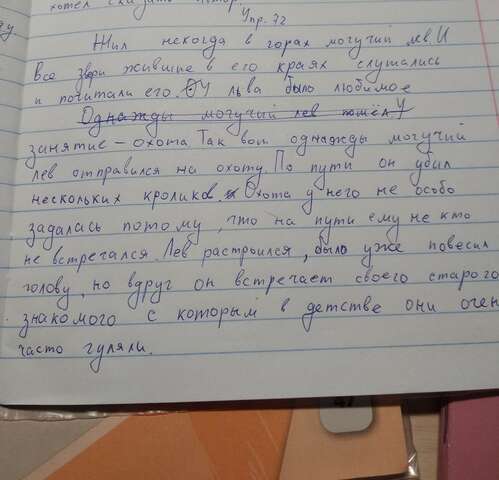 хотел сказать
Упр. 72
Жил некогда в горах могучий лев. И
все звери жившие в его краях слушались
и почитали его. У льва было любимое
Однажды могучий лев пошёл У
занятие – охота. Так вот однажды могучий
лев отправился на охоту. По пути он убил
нескольких кроликов. Охота у него не особо
задалась потому, что на пути ему не кто
не встречался. Лев растроился, было уже повесил
голову, но вдруг он встречает своего старого
знакомого с которым в детстве они очен
часто гуляли.